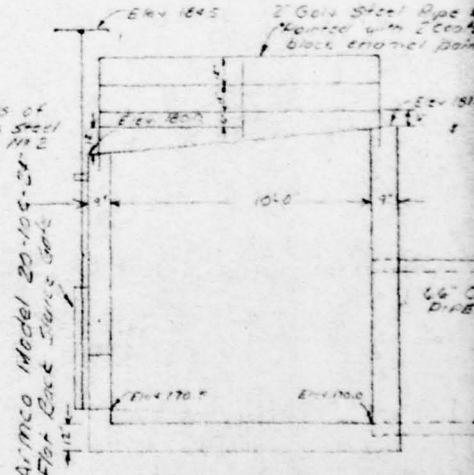 Elev 184.5
2" Galv Steel Pipe
Painted with 2 coats
block enamel paint
s of
Steel
Nº 2
Elev 180.0
Elev 181
9"
10'-0"
9"
Armco Model 20-10
Flat Back Sluice Gate
66"
Pipe
Elev 170.5
Elev 170.0
12"